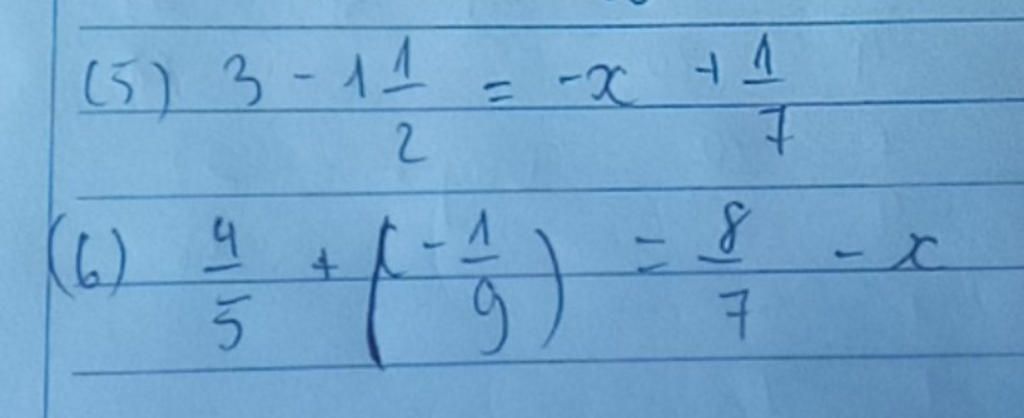 (5) 3 - 1 1/2 = -x + 1/7
(6) 4/5 + (-1/9) = 8/7 - x